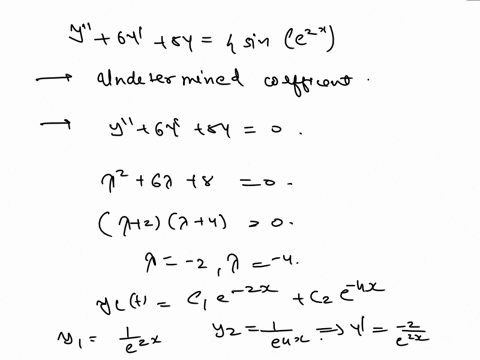 y'' + 6y' + 8y = 4 sin (e^{2x})
→ Undetermined coefficent .
→ y'' + 6y' + 8y = 0 .
λ² + 6λ + 8 = 0 .
(λ+2) (λ+4) = 0 .
λ = -2 , λ = -4 .
y_c(t) = C_1 e^{-2x} + C_2 e^{-4x}
y_1 = 1/e^{2x}   y_2 = 1/e^{4x} ⇒ y' = -2/e^{2x}